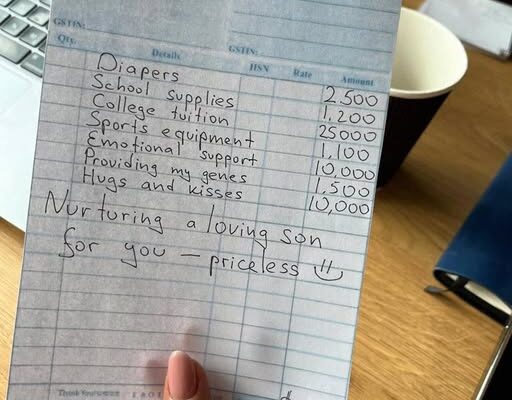 GSTIN:
GSTIN:
Qty. Details HSN Rate Amount
Diapers 2,500
School supplies 1,200
College tuition 25000
Sports equipment 1,100
Emotional support 10,000
Providing my genes 1,500
Hugs and kisses 10,000
Nurturing a loving son
for you — priceless